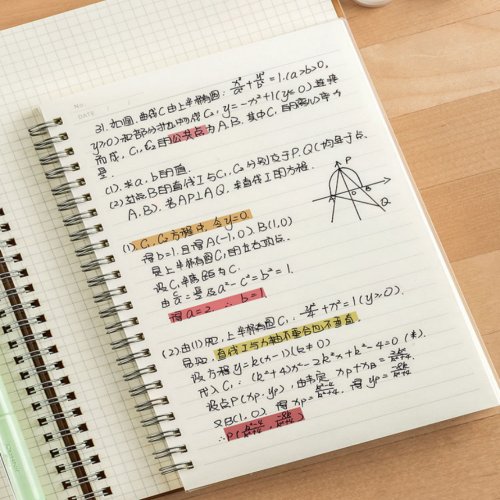 No.
DATE
31. 如图, 曲线C由上半椭圆C₁: y²/a²+x²/b²=1(a>b>0,
y≥0)和部分抛物线C₂: y=-x²+1(y≤0)连接
而成, C₁, C₂的公共点为A,B, 其中C₁的离心率为
(1). 求a, b的值.
(2) 过点B的直线l与C₁, C₂分别交于P.Q(均异于点
A,B), 若AP⊥AQ, 求直线l的方程.
P
O
B
Q
(1) C₁, C₂方程中, 令y=0
得b=1, 且得A(-1,0), B(1,0)
是上半椭圆C₁的左右顶点.
设C₁半焦距为C.
由 a²-c²=b²=1.
得a=2, ∴b=1
(2) 由(1)知, 上半椭圆C₁: y²/4+x²=1(y≥0).
易知, 直线l与x轴不重合也不垂直.
设方程y=k(x-1)(k≠0)
代入C₁: (k²+4)x²-2k²x+k²-4=0 (*).
设点P(xp, yp),
又B(1,0), 得xp=k²-4/k²+4, 得yp=-8k/k²+4
∴P(k²-4/k²+4, -8k/k²+4)